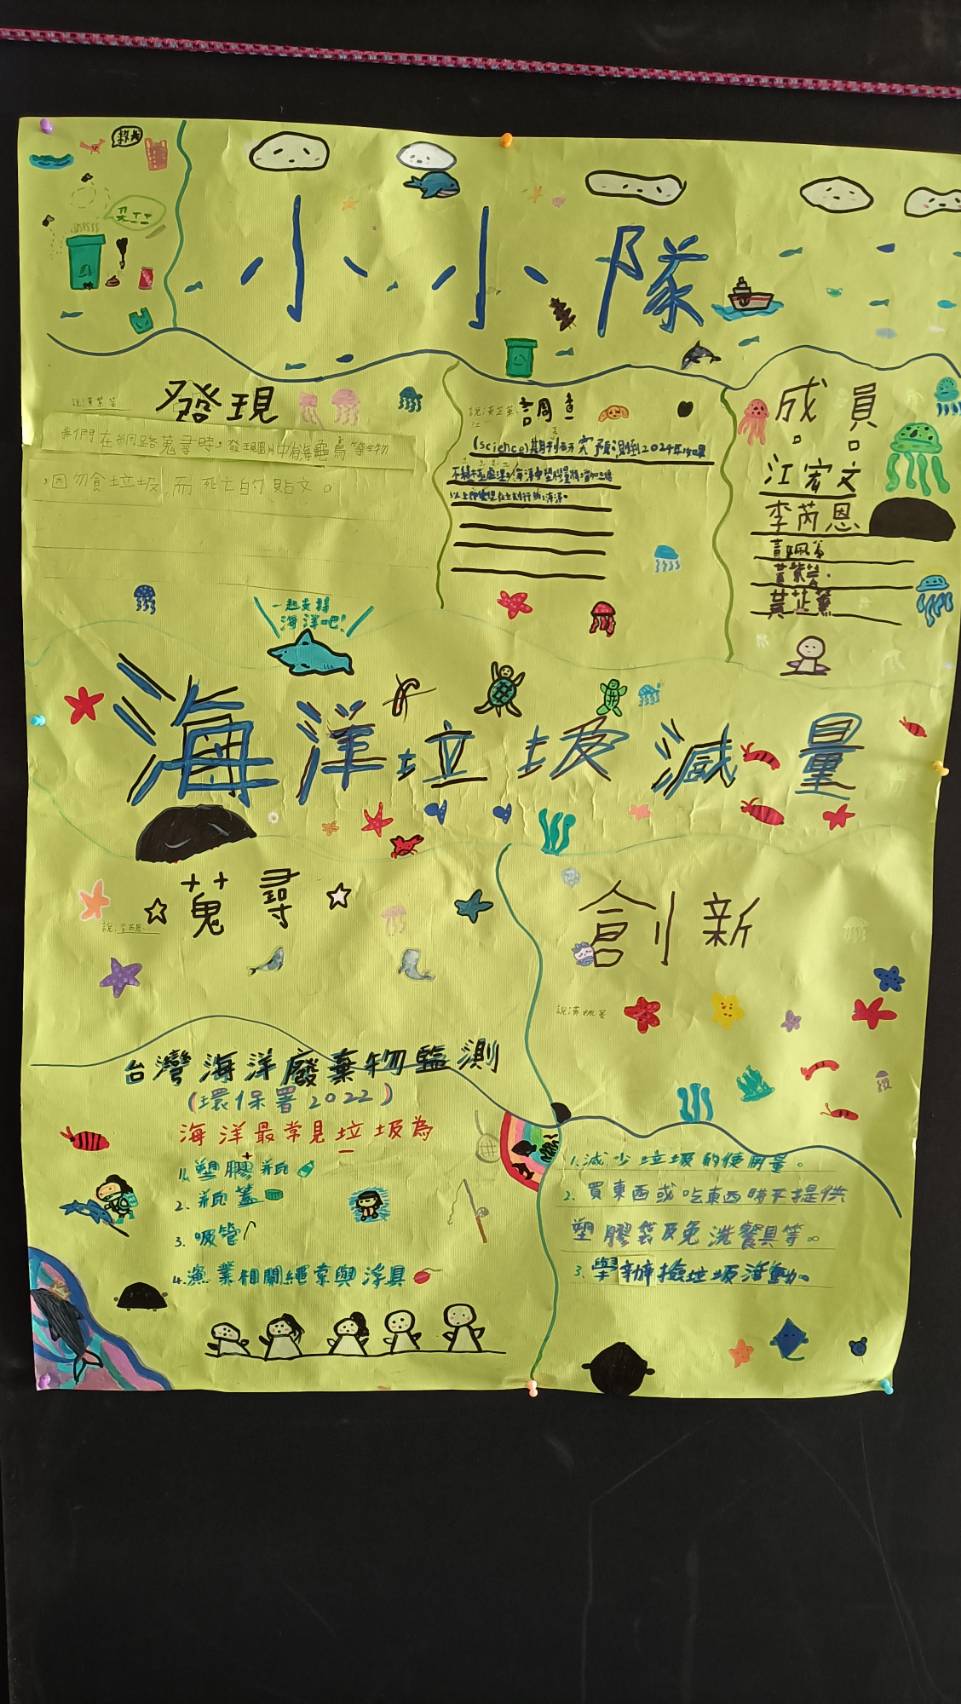 救命
小小隊
發現
我們在網路蒐尋時,發現圖片中海龜鳥等生物
,因勿食垃圾,而死亡的貼文。
調查
(science)期刊研究預測到2024年如果
不積極處理,海洋中塑膠量將增加三倍
成員
江宏文
李芮恩
黃芷薰
一起支持
海洋吧!
海洋垃圾減量
蒐尋
創新
台灣海洋廢棄物監測
(環保署2022)
海洋最常見垃圾為
1.塑膠瓶
2.瓶蓋
3.吸管
4.漁業相關繩索與浮具
1.減少垃圾的使用量。
2.買東西或吃東西時不提供
塑膠袋及免洗餐具等。
3.舉辦撿垃圾活動。